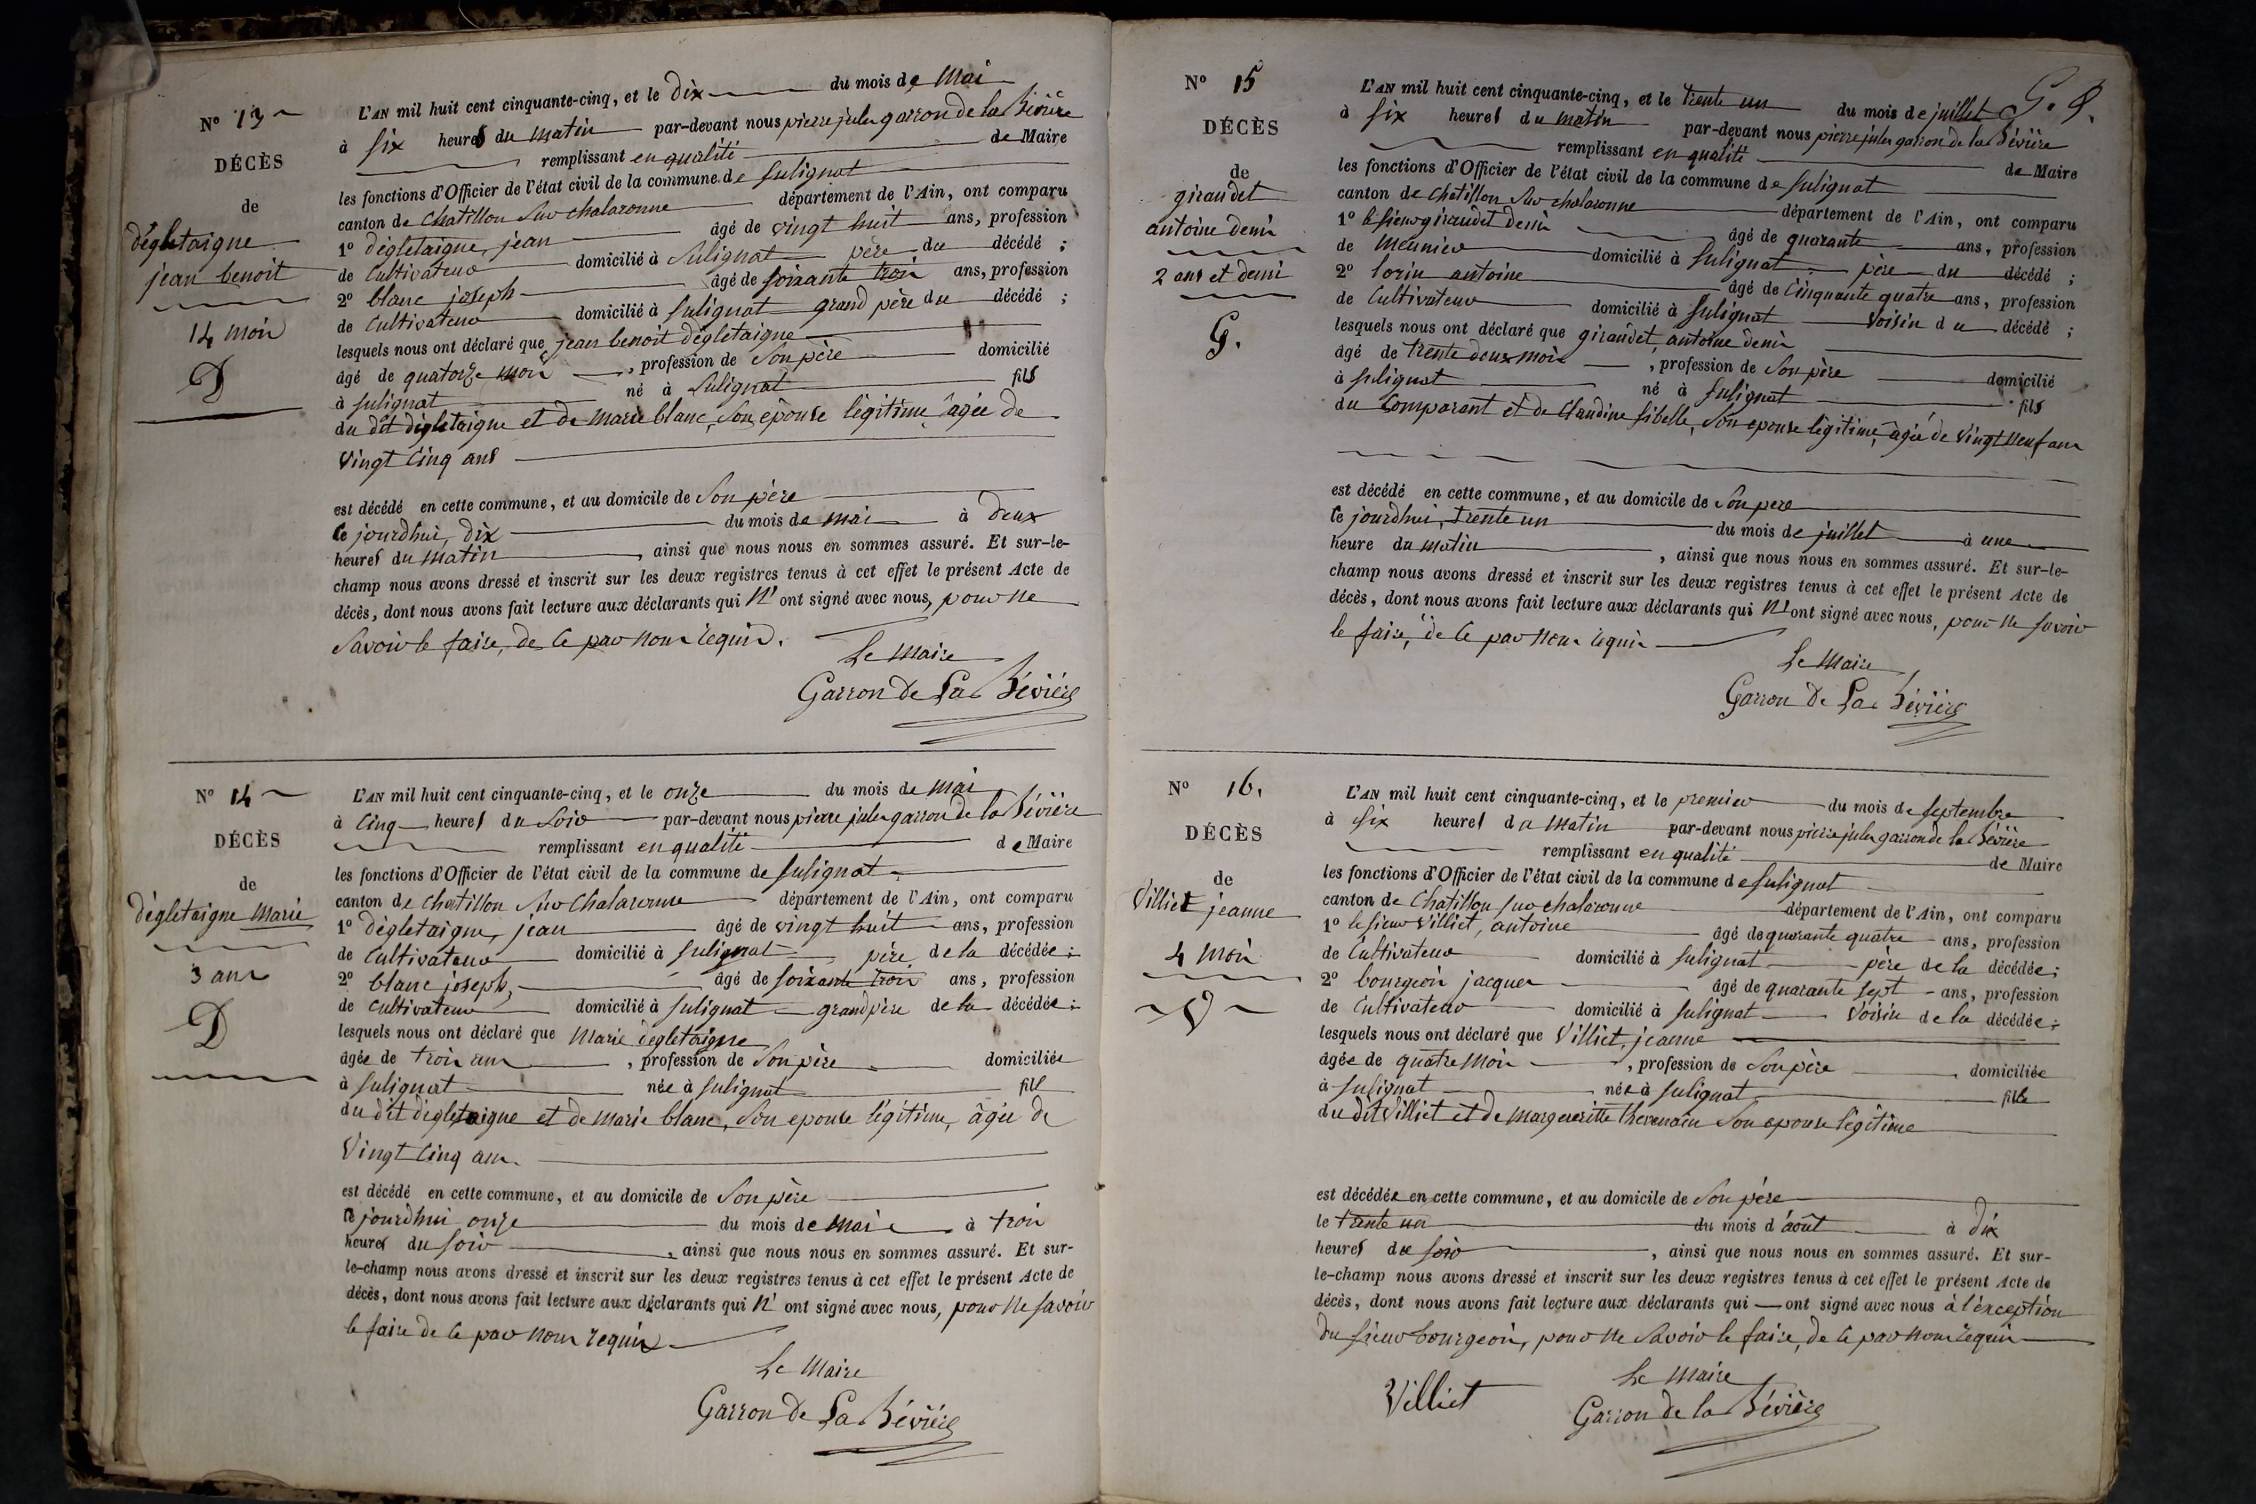 N° 13
DÉCÈS
de
dégletaigne
jean benoit
14 mois
D
L'AN mil huit cent cinquante-cinq, et le dix du mois de Mai
à six heures du matin par-devant nous pierre jules garron de la Bévière
remplissant en qualité de Maire
les fonctions d'Officier de l'état civil de la commune de Sulignat
canton de Chatillon sur chalaronne département de l'Ain, ont comparu
1° dégletaigne, jean âgé de vingt huit ans, profession
de Cultivateur domicilié à Sulignat père du décédé ;
2° blanc joseph âgé de soixante trois ans, profession
de Cultivateur domicilié à Sulignat grand père du décédé ;
lesquels nous ont déclaré que jean benoit dégletaigne
âgé de quatorze mois , profession de Son père domicilié
à Sulignat né à Sulignat fils
du dit dégletaigne et de marie blanc, Son épouse légitime, âgée de
Vingt Cinq ans
est décédé en cette commune, et au domicile de Son père
ce jourdhui, dix du mois de mai à deux
heures du matin , ainsi que nous nous en sommes assuré. Et sur-le-
champ nous avons dressé et inscrit sur les deux registres tenus à cet effet le présent Acte de
décès, dont nous avons fait lecture aux déclarants qui N' ont signé avec nous, pour ne
Savoir le faire, de ce par nous requis.
Le Maire
Garron De La Bévière
N° 14
DÉCÈS
de
dégletaigne Marie
3 ans
D
L'AN mil huit cent cinquante-cinq, et le onze du mois de Mai
à Cinq heures du Soir par-devant nous pierre jules garron de la Bévière
remplissant en qualité de Maire
les fonctions d'Officier de l'état civil de la commune de Sulignat
canton de Chatillon Sur Chalaronne département de l'Ain, ont comparu
1° dégletaigne, jean âgé de vingt huit ans, profession
de Cultivateur domicilié à Sulignat père de la décédée ;
2° blanc joseph, âgé de soixante trois ans, profession
de Cultivateur domicilié à Sulignat grand père de la décédée ;
lesquels nous ont déclaré que Marie degletaigne
âgée de trois ans , profession de Son père domiciliée
à Sulignat née à Sulignat fille
du dit dégletaigne et de Marie blanc, Son epouse légitime, âgée de
Vingt Cinq ans.
est décédé en cette commune, et au domicile de Son père
ce jourdhui onze du mois de Mai à trois
heures du soir , ainsi que nous nous en sommes assuré. Et sur-
le-champ nous avons dressé et inscrit sur les deux registres tenus à cet effet le présent Acte de
décès, dont nous avons fait lecture aux déclarants qui N' ont signé avec nous, pour Ne Savoir
le faire de ce par nous requis
Le Maire
Garron De La Bévière
N° 15
DÉCÈS
de
giraudet
antoine denis
2 ans et demi
G.
L'AN mil huit cent cinquante-cinq, et le trente un du mois de juillet
à six heures du matin par-devant nous pierre jules garron de la Bévière
remplissant en qualité de Maire
les fonctions d'Officier de l'état civil de la commune de Sulignat
canton de Chatillon Sur chalaronne département de l'Ain, ont comparu
1° le sieur giraudet denis âgé de quarante ans, profession
de Meunier domicilié à Sulignat père du décédé ;
2° lorin antoine âgé de Cinquante quatre ans, profession
de Cultivateur domicilié à Sulignat Voisin du décédé ;
lesquels nous ont déclaré que giraudet, antoine denis
âgé de trente deux mois , profession de Son père domicilié
à Sulignat né à Sulignat fils
du Comparant et de Claudine sibelle, Son epouse légitime, âgée de Vingt neuf ans
est décédé en cette commune, et au domicile de Son pere
ce jourdhui, trente un du mois de juillet à une
heure du matin , ainsi que nous nous en sommes assuré. Et sur-le-
champ nous avons dressé et inscrit sur les deux registres tenus à cet effet le présent Acte de
décès, dont nous avons fait lecture aux déclarants qui N' ont signé avec nous, pour Ne Savoir
le faire, de ce par nous requis
Le Maire
Garron De La Bévière
N° 16.
DÉCÈS
de
Villiet jeanne
4 mois
V
L'AN mil huit cent cinquante-cinq, et le premier du mois de Septembre
à six heures du Matin par-devant nous pierre jules garron de la Bévière
remplissant en qualité de Maire
les fonctions d'Officier de l'état civil de la commune de Sulignat
canton de Chatillon sur chalaronne département de l'Ain, ont comparu
1° le sieur Villiet, antoine âgé de quarante quatre ans, profession
de Cultivateur domicilié à Sulignat père de la décédée ;
2° bourgeois jacques âgé de quarante sept ans, profession
de Cultivateur domicilié à Sulignat Voisin de la décédée ;
lesquels nous ont déclaré que Villiet, jeanne
âgée de quatre Mois , profession de Son père domiciliée
à Sulignat née à Sulignat fille
du dit Villiet et de Margueritte thevenain Son epouse légitime
est décédée en cette commune, et au domicile de Son père
le trente un du mois d'août à dix
heures du soir , ainsi que nous nous en sommes assuré. Et sur-
le-champ nous avons dressé et inscrit sur les deux registres tenus à cet effet le présent Acte de
décès, dont nous avons fait lecture aux déclarants qui ont signé avec nous à l'éxception
du sieur bourgeois, pour Ne Savoir le faire, de ce par nous requis
Villiet
Le Maire
Garron de la Bévière